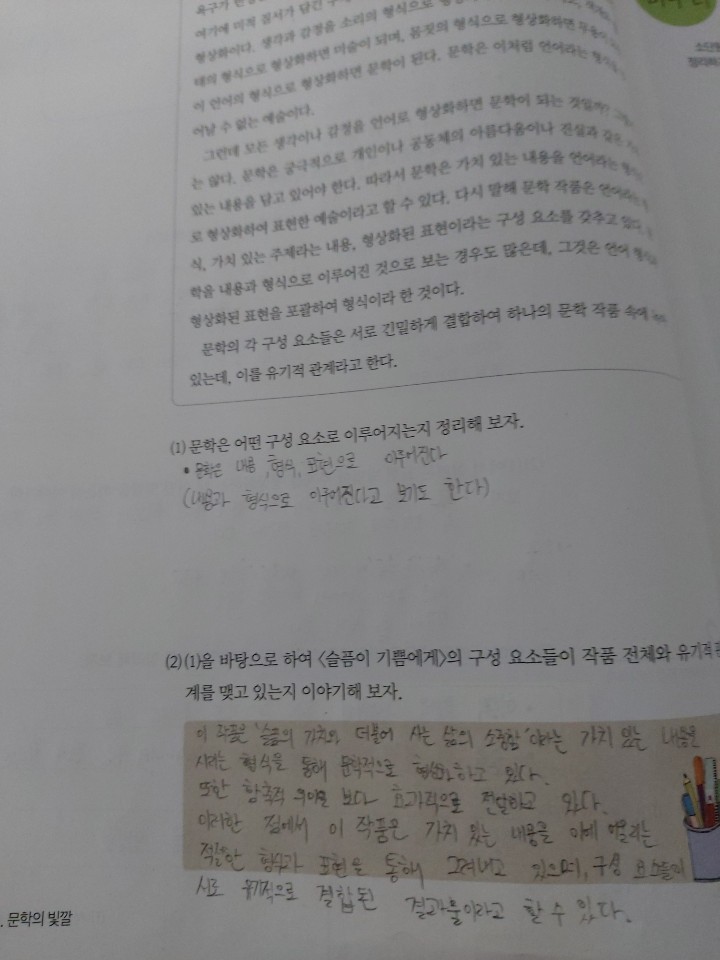 여기에 미적 질서가 담긴
형상화이다. 생각과 감정을 소리의 형식으로
태의 형식으로 형상화하면 미술이 되며, 몸짓의 형식으로 형상화하면
이 언어의 형식으로 형상화하면 문학이 된다. 문학은 이처럼 언어라는
어날 수 없는 예술이다.
그런데 모든 생각이나 감정을 언어로 형상화하면 문학이 되는 것일까?
는 않다. 문학은 궁극적으로 개인이나 공동체의 아름다움이나 진실과 같은
있는 내용을 담고 있어야 한다. 따라서 문학은 가치 있는 내용을 언어라는
로 형상화하여 표현한 예술이라고 할 수 있다. 다시 말해 문학 작품은 언어라는
식, 가치 있는 주제라는 내용, 형상화된 표현이라는 구성 요소를 갖추고 있다.
학을 내용과 형식으로 이루어진 것으로 보는 경우도 많은데, 그것은 언어
형상화된 표현을 포괄하여 형식이라 한 것이다.
문학의 각 구성 요소들은 서로 긴밀하게 결합하여 하나의 문학 작품 속에
있는데, 이를 유기적 관계라고 한다.
소단원
정리하기
(1) 문학은 어떤 구성 요소로 이루어지는지 정리해 보자.
• 문학은 내용, 형식, 표현으로 이루어진다
(내용과 형식으로 이루어진다고 보기도 한다)
(2) (1)을 바탕으로 하여 <슬픔이 기쁨에게>의 구성 요소들이 작품 전체와 유기적 관
계를 맺고 있는지 이야기해 보자.
이 작품은 '슬픔의 가치와 더불어 사는 삶의 소중함'이라는 가치 있는 내용을
시라는 형식을 통해 문학적으로 형상화하고 있다.
또한 함축적 의미를 보다 효과적으로 전달하고 있다.
이러한 점에서 이 작품은 가치 있는 내용을 이에 어울리는
적절한 형식과 표현을 통해 그려내고 있으며, 구성 요소들이
서로 유기적으로 결합된 결과물이라고 할 수 있다.
. 문학의 빛깔